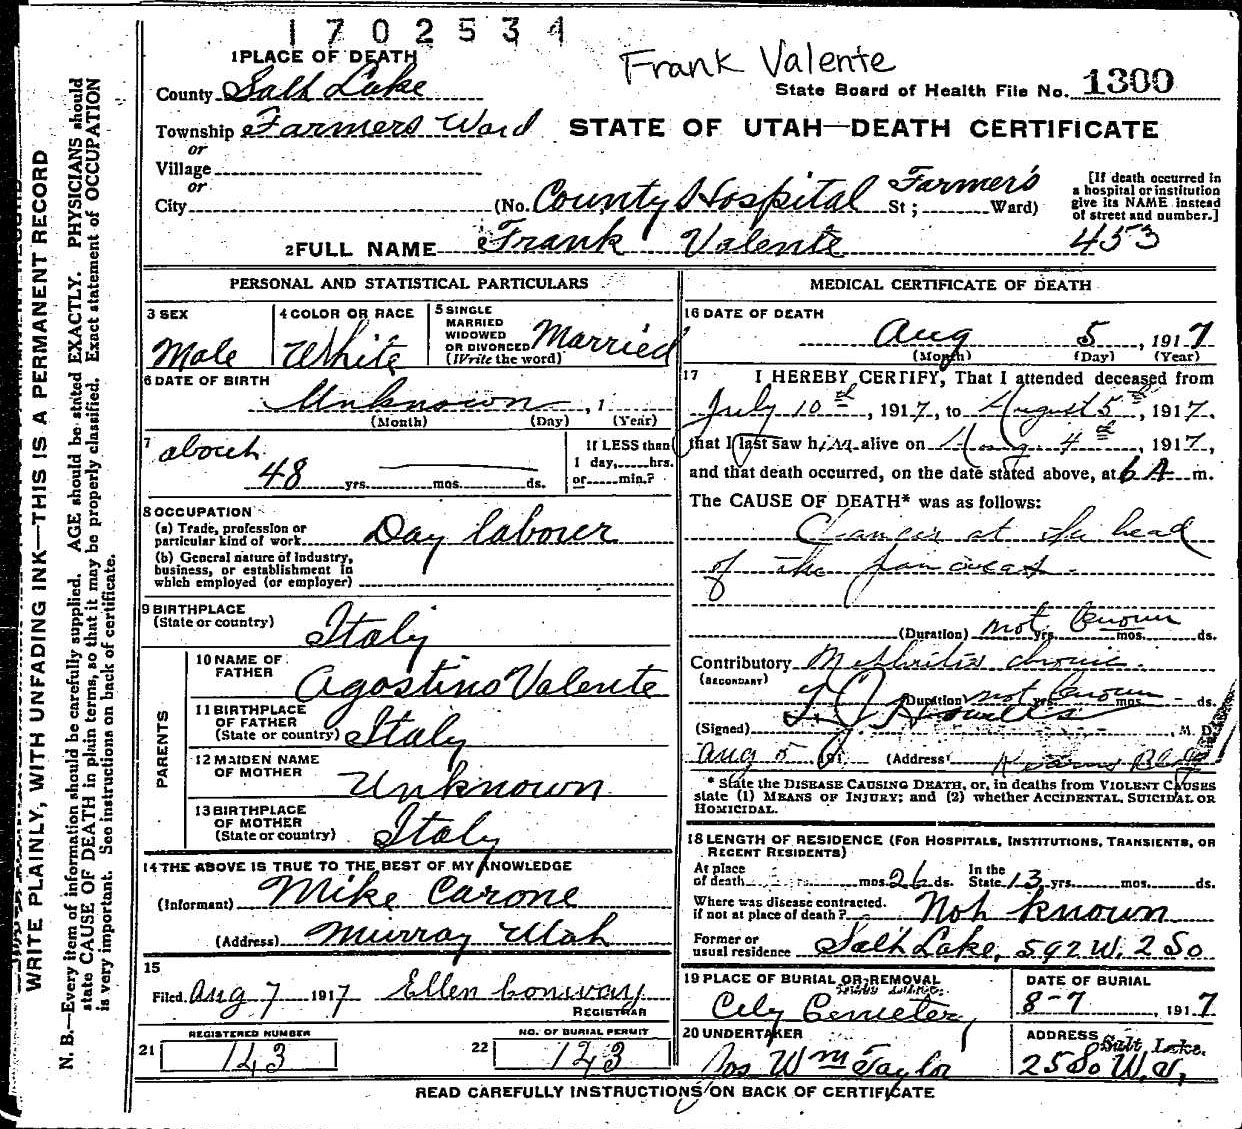 1702534
Frank Valente
1 PLACE OF DEATH
County Salt Lake
State Board of Health File No. 1300
Township Farmers Ward
STATE OF UTAH—DEATH CERTIFICATE
or
Village
or
City (No. County Hospital St; Farmer's Ward)
[If death occurred in a hospital or institution give its NAME instead of street and number.]
2 FULL NAME Frank Valente
453
PERSONAL AND STATISTICAL PARTICULARS
3 SEX
Male
4 COLOR OR RACE
White
5 SINGLE MARRIED WIDOWED OR DIVORCED (Write the word)
Married
6 DATE OF BIRTH
Unknown, 1
(Month) (Day) (Year)
7 about
48 yrs. mos. ds.
If LESS than 1 day, hrs. or min.?
8 OCCUPATION
(a) Trade, profession or particular kind of work Day laborer
(b) General nature of industry, business, or establishment in which employed (or employer)
9 BIRTHPLACE
(State or country) Italy
PARENTS
10 NAME OF FATHER Agostino Valente
11 BIRTHPLACE OF FATHER (State or country) Italy
12 MAIDEN NAME OF MOTHER Unknown
13 BIRTHPLACE OF MOTHER (State or country) Italy
14 THE ABOVE IS TRUE TO THE BEST OF MY KNOWLEDGE
(Informant) Mike Carone
(Address) Murray Utah
15
Filed Aug 7 1917 Ellen Conway
REGISTRAR
REGISTERED NUMBER
21 143
NO. OF BURIAL PERMIT
22 143
MEDICAL CERTIFICATE OF DEATH
16 DATE OF DEATH
Aug 5, 1917
(Month) (Day) (Year)
17 I HEREBY CERTIFY, That I attended deceased from
July 10th, 1917, to August 5th, 1917,
that I last saw him alive on Aug. 4th, 1917,
and that death occurred, on the date stated above, at 6 A m.
The CAUSE OF DEATH* was as follows:
Cancer at the head
of the pancreas.
(Duration) not known yrs. mos. ds.
Contributory chronic.
(SECONDARY)
(Duration) not known yrs. mos. ds.
(Signed) Howells, M. D.
Aug 5 191 (Address) Kearns Bldg
* State the DISEASE CAUSING DEATH, or, in deaths from VIOLENT CAUSES
state (1) MEANS OF INJURY; and (2) whether ACCIDENTAL, SUICIDAL OR
HOMICIDAL.
18 LENGTH OF RESIDENCE (FOR HOSPITALS, INSTITUTIONS, TRANSIENTS, OR
RECENT RESIDENTS)
At place of death mos. 26 ds. In the State 13 yrs. mos. ds.
Where was disease contracted. if not at place of death? Not known
Former or usual residence Salt Lake, 592 W. 2 So
19 PLACE OF BURIAL OR REMOVAL
City Cemetery
DATE OF BURIAL
8-7, 1917
20 UNDERTAKER
Jos Wm Taylor
ADDRESS Salt Lake.
READ CAREFULLY INSTRUCTIONS ON BACK OF CERTIFICATE
WRITE PLAINLY, WITH UNFADING INK—THIS IS A PERMANENT RECORD
N. B.—Every item of information should be carefully supplied. AGE should be stated EXACTLY. PHYSICIANS should
state CAUSE OF DEATH in plain terms, so that it may be properly classified. Exact statement of OCCUPATION
is very important. See instructions on back of certificate.